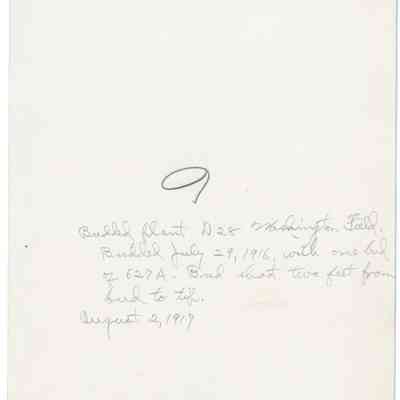 9
Budded plant D28 Washington Field.
Budded July 29, 1916, with one bud
of 627A. Bud shoot two feet from
bud to tip.
August 2, 1917